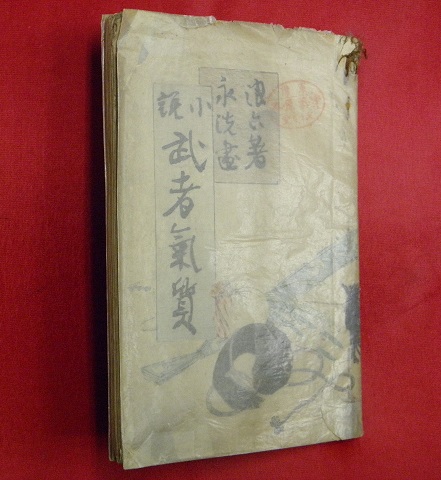 浪六著
永洗畫
小説
武者氣質